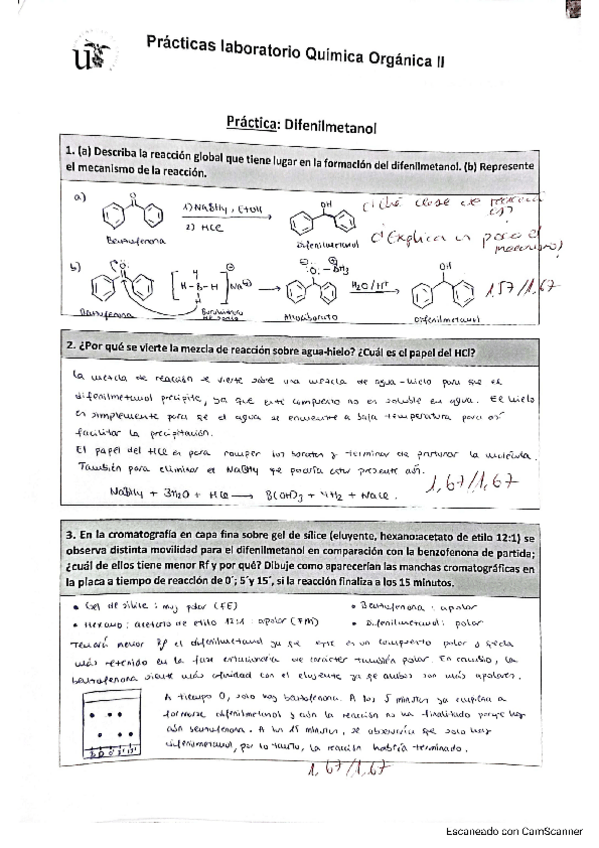 Prácticas laboratorio Química Orgánica II
Práctica: Difenilmetanol
1. (a) Describa la reacción global que tiene lugar en la formación del difenilmetanol. (b) Represente
el mecanismo de la reacción.
a)
O
1) NaBH4, EtOH
2) HCl
OH
Benzofenona
Difenilmetanol
¿Qué clase de reacción
es?
¿Explica un poco el
mecanismo?
b)
H
H-B-H
H
Na
H2O/H+
OH
Benzofenona
Difenilmetanol
1,57/1,67
2. ¿Por qué se vierte la mezcla de reacción sobre agua-hielo? ¿Cuál es el papel del HCl?
La mezcla de reacción se vierte sobre una mezcla de agua-hielo para que el
difenilmetanol precipite, ya que este compuesto no es soluble en agua. El hielo
es simplemente para que el agua se encuentre a baja temperatura para así
facilitar la precipitación.
El papel del HCl es para romper los boratos y terminar de protonar la molécula.
También para eliminar el NaBH4 que podría estar presente aún.
NaBH4 + 3H2O + HCl → B(OH)3 + 4H2 + NaCl.
1,67/1,67
3. En la cromatografía en capa fina sobre gel de sílice (eluyente, hexano:acetato de etilo 12:1) se
observa distinta movilidad para el difenilmetanol en comparación con la benzofenona de partida;
¿cuál de ellos tiene menor Rf y por qué? Dibuje como aparecerían las manchas cromatográficas en
la placa a tiempo de reacción de 0´; 5´y 15´, si la reacción finaliza a los 15 minutos.
• Gel de sílice: muy polar (FE)
• Benzofenona: apolar
• Hexano: acetato de etilo 12:1: apolar (FM)
• Difenilmetanol: polar
Tendrá menor Rf el difenilmetanol ya que este es un compuesto polar y queda
más retenido en la fase estacionaria de carácter también polar. En cambio, la
benzofenona siente más afinidad con el eluyente ya que ambos son más apolares.
A tiempo 0, solo hay benzofenona. A los 5 minutos ya empieza a
formarse difenilmetanol y aún la reacción no ha finalizado porque hay
aún benzofenona. A los 15 minutos, se observaría que solo hay
difenilmetanol, por lo tanto, la reacción habría terminado.
1,67/1,67
Escaneado con CamScanner